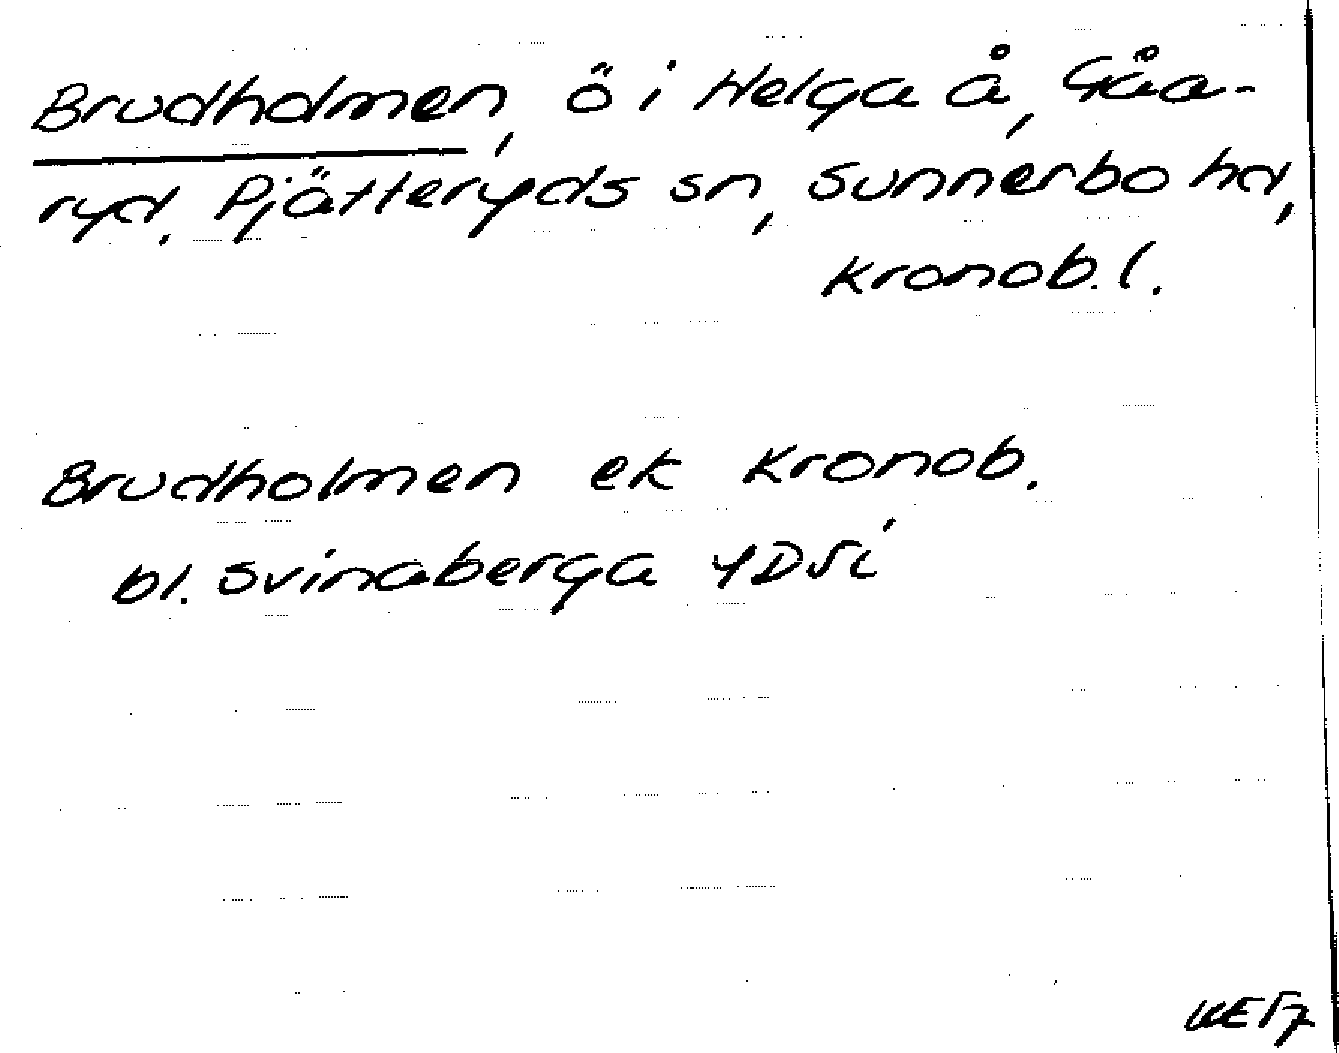 Brudholmen, ö i Helga å, Gåa-
ryd. Pjätteryds sn, Sunnerbo hd,
Kronob. l.
Brudholmen ek Kronob.
bl. Svinaberga YD5i